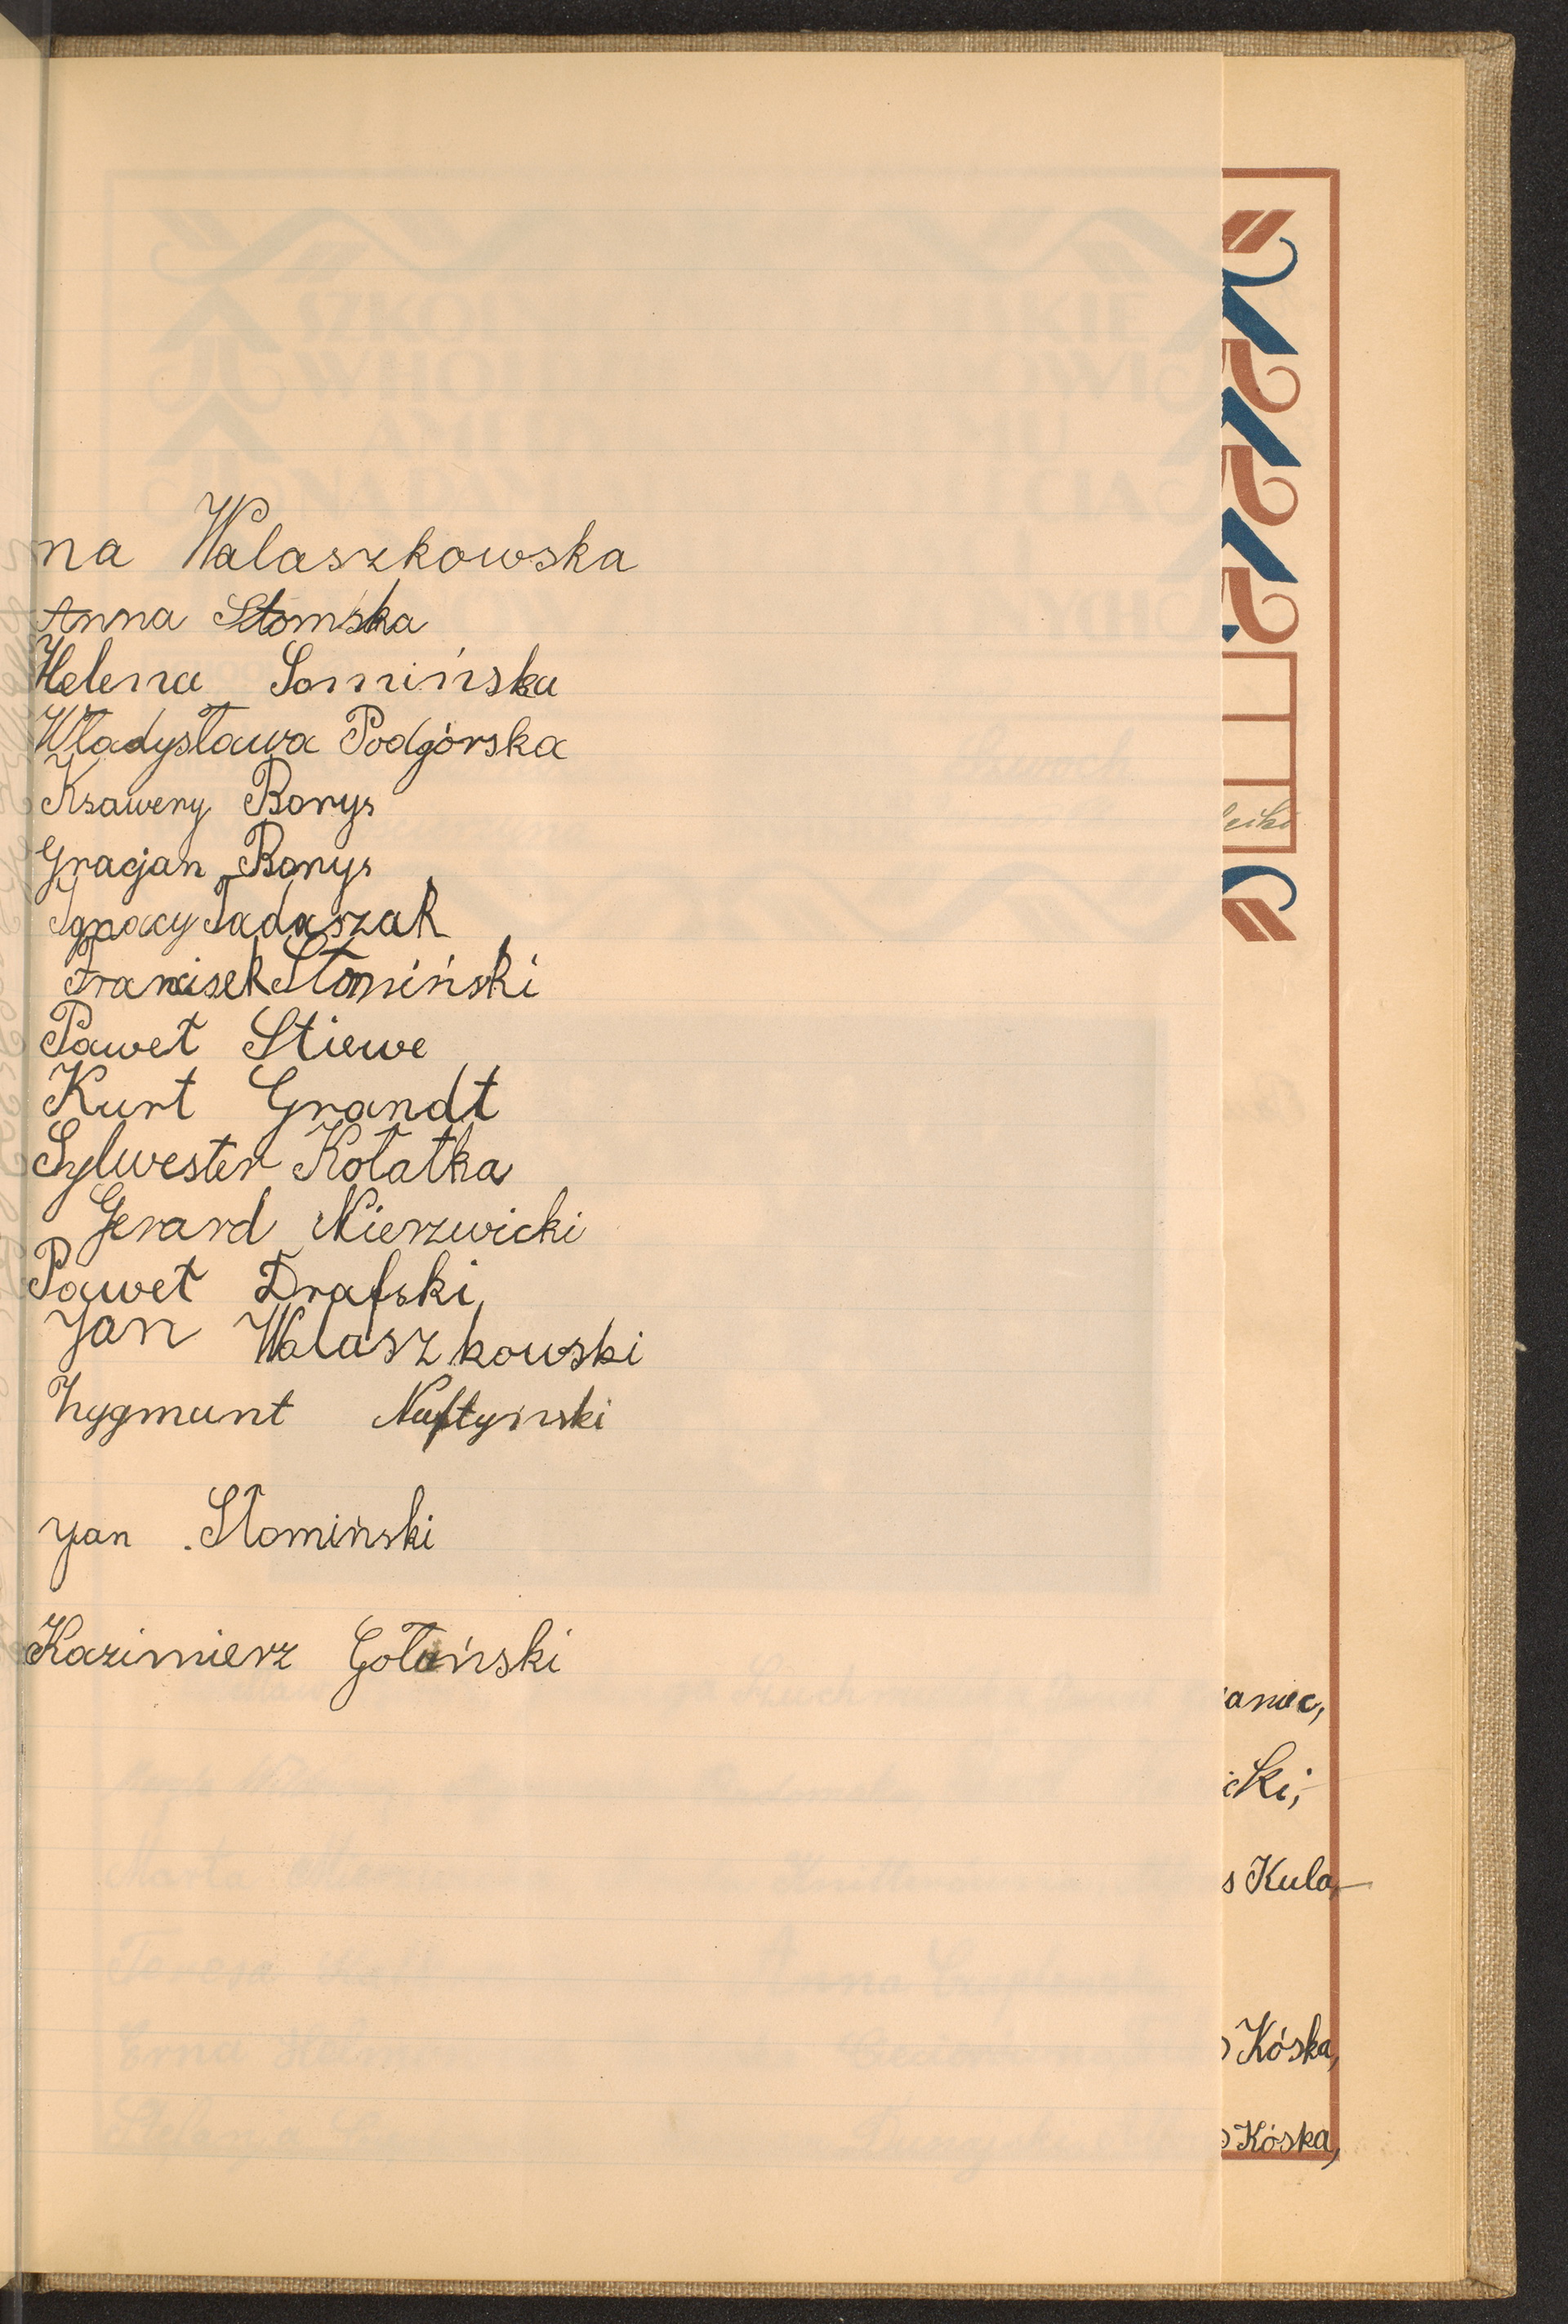 na Walaszkowska
Anna Słomska
Helena Somińska
Władysława Podgórska
Ksawery Borys
Gracjan Borys
Ignacy Tadaszak
Francisek Słomiński
Paweł Stiewe
Kurt Grandt
Sylwester Kołatka
Gerard Nierzwicki
Paweł Drafski,
Jan Walaszkowski
Zygmunt Naftyński
Jan Słomiński
Kazimierz Gołuński
aniec,
icki,
s Kula,
Kóska,
Kóska,